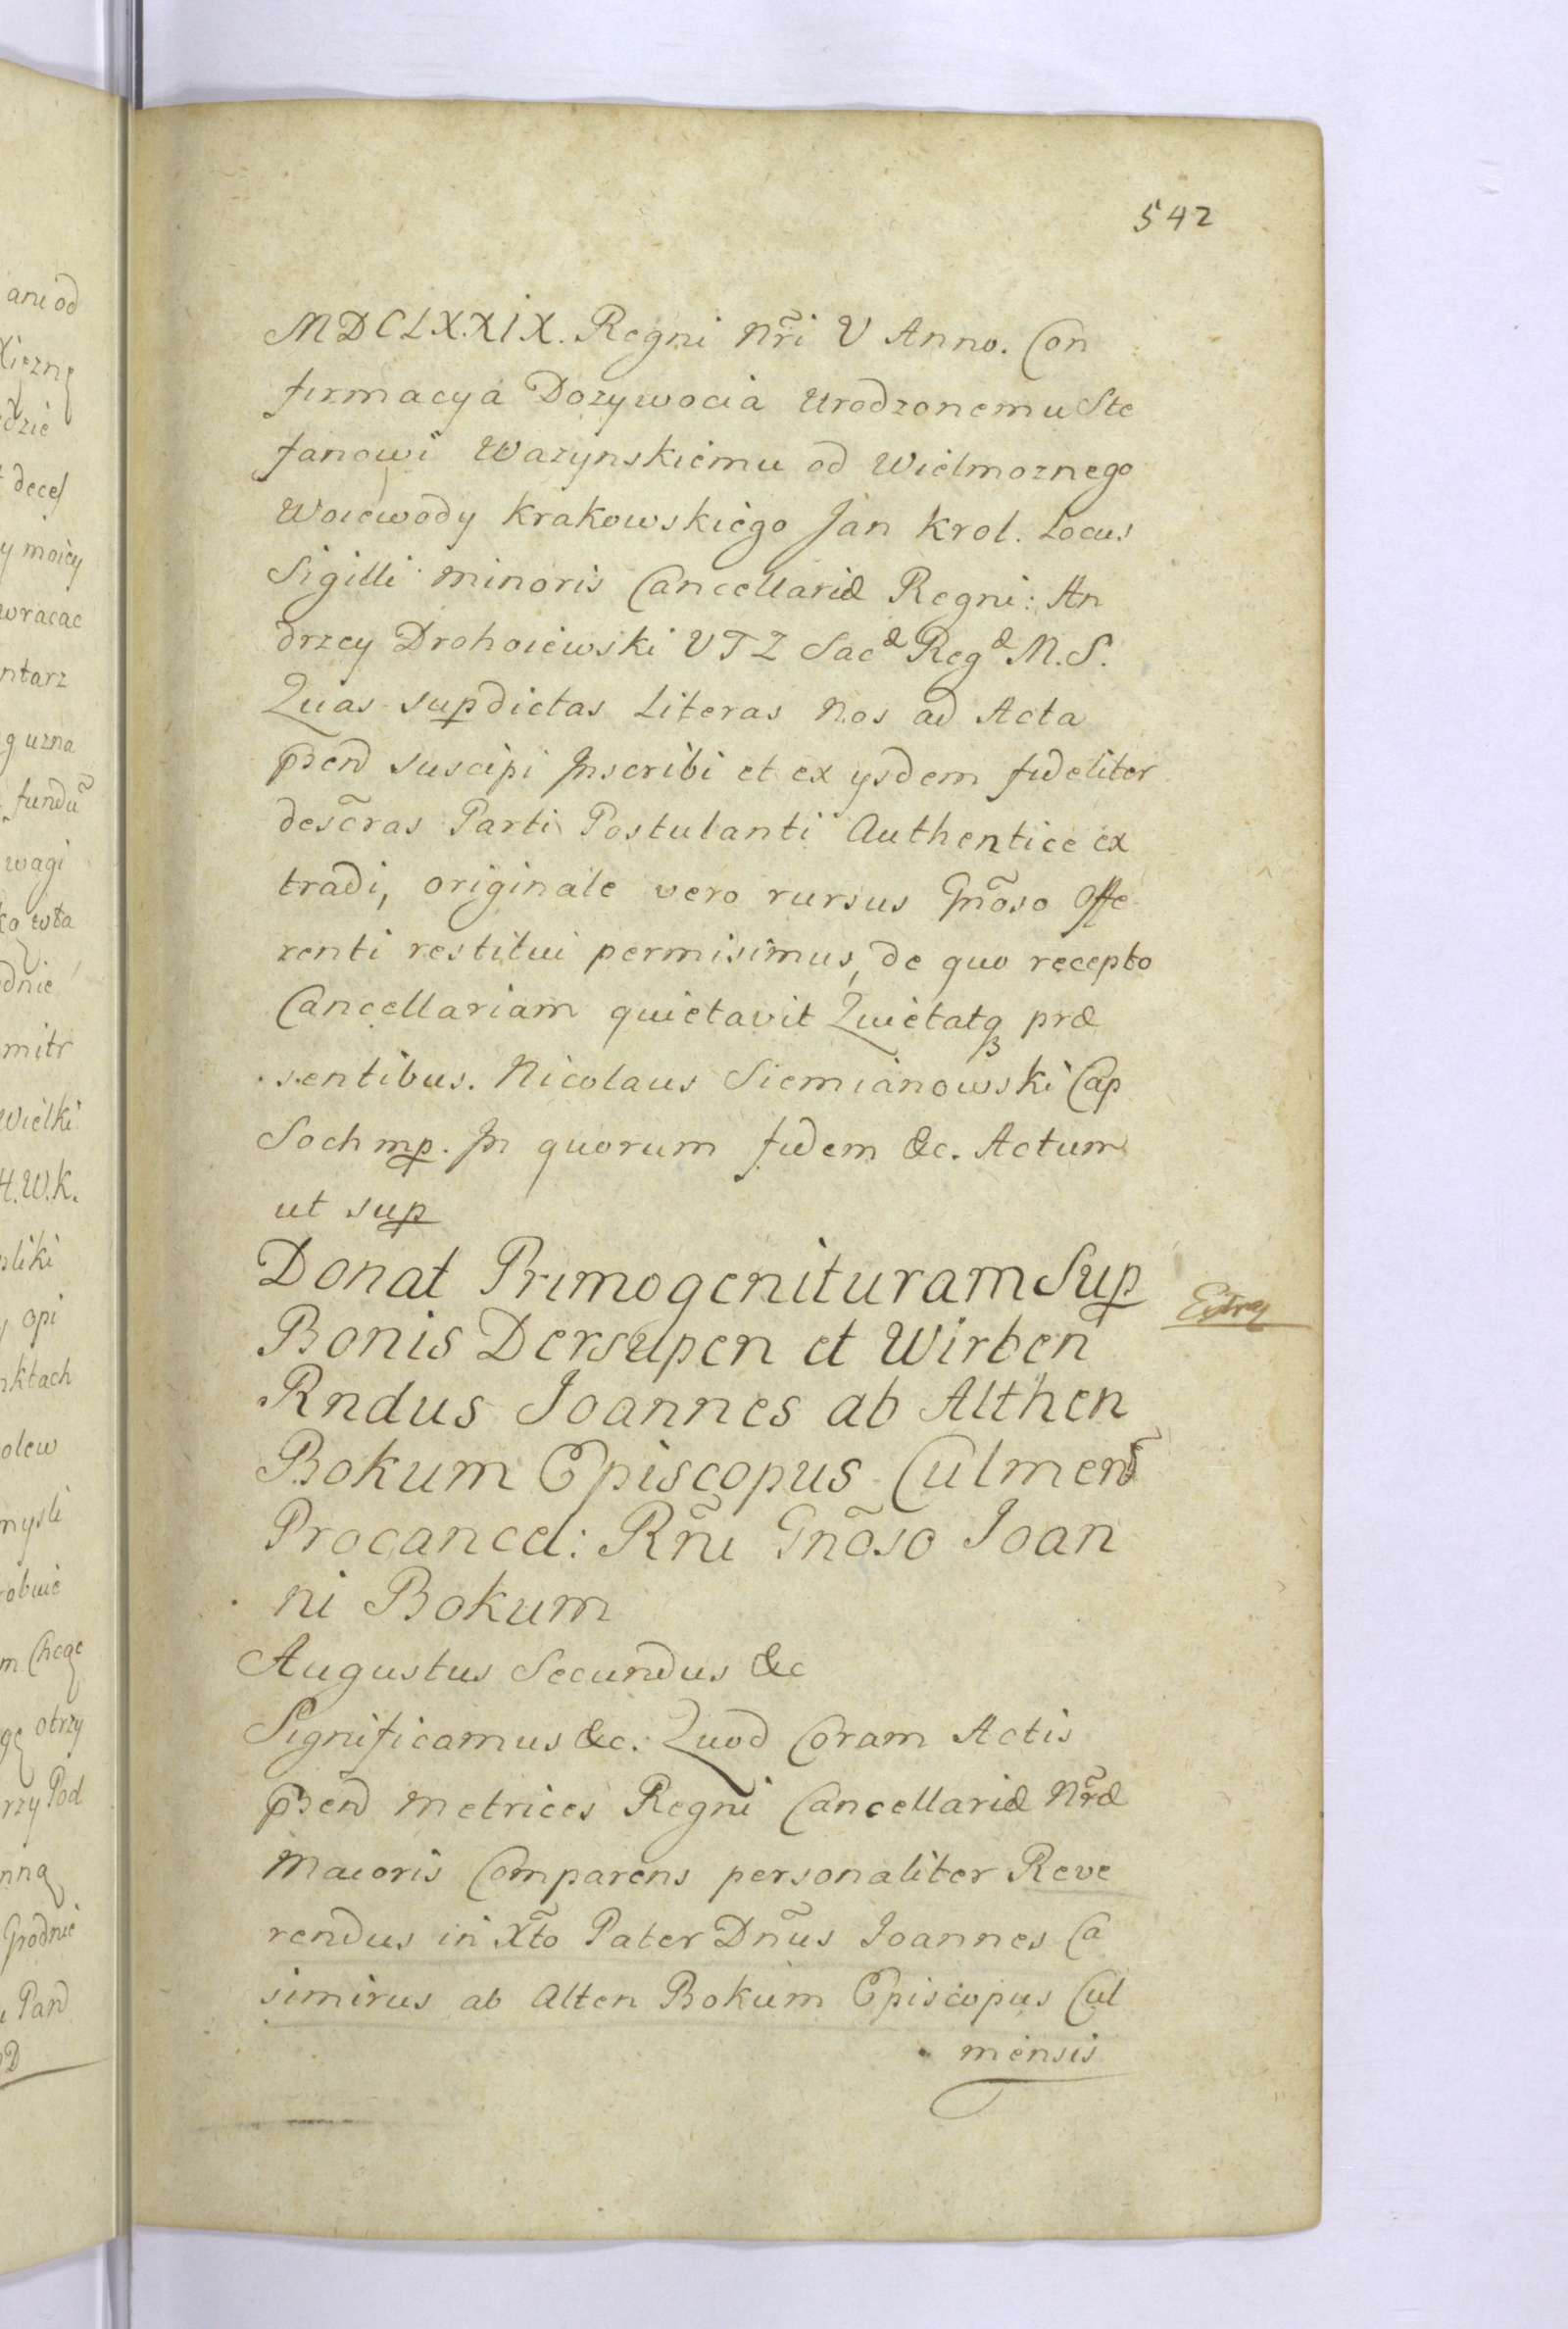 542
MDCLXXIX. Regni Nr̃i V Anno. Con
firmacya Dozywocia Urodzonemu Ste
fanowi Wazynskiemu od Wielmoznego
Woiewody Krakowskiego Jan Krol. Locus
Sigilli minoris Cancellariæ Regni: An
drzey Drohoiewski VTZ Sacæ Regæ M.S.
Quas supdictas Literas Nos ad Acta
pñend suscipi Inscribi et ex ysdem fideliter
desc̃ras Parti Postulanti Authentice ex
tradi, originale vero rursus Gnõso Offe
renti restitui permisimus, de quo recepto
Cancellariam quietavit Quietatq præ
sentibus. Nicolaus Siemianowski Cap
Soch mp. In quorum fidem &c. Actum
ut sup
Donat Primogenituram Sup
Bonis Dersupen et Wirben
Rndus Joannes ab Althen
Bokum Episcopus Culmens̃
Procancel: Rñi Gnõso Joan
ni Bokum
Extra
Augustus Secundus &c
Significamus &c. Quod Coram Actis
pñend Metrices Regni Cancellariæ Nr̃æ
Maioris Comparens personaliter Reve
rendus in Xt̃o Pater Dnũs Joannes Ca
simirus ab Alten Bokum Episcopus Cul
mensis
ani od
dzie
deces
y moiey
wracac
ntarz
g uzna
fundũ
wagi
ko wła
dnie
mitr
Wielki
H.W.K.
pliki
opi
nktach
olew
mysli
robuie
m Chcąc
gę otrzy
rzy Pod
nną
Grodnie
Pand